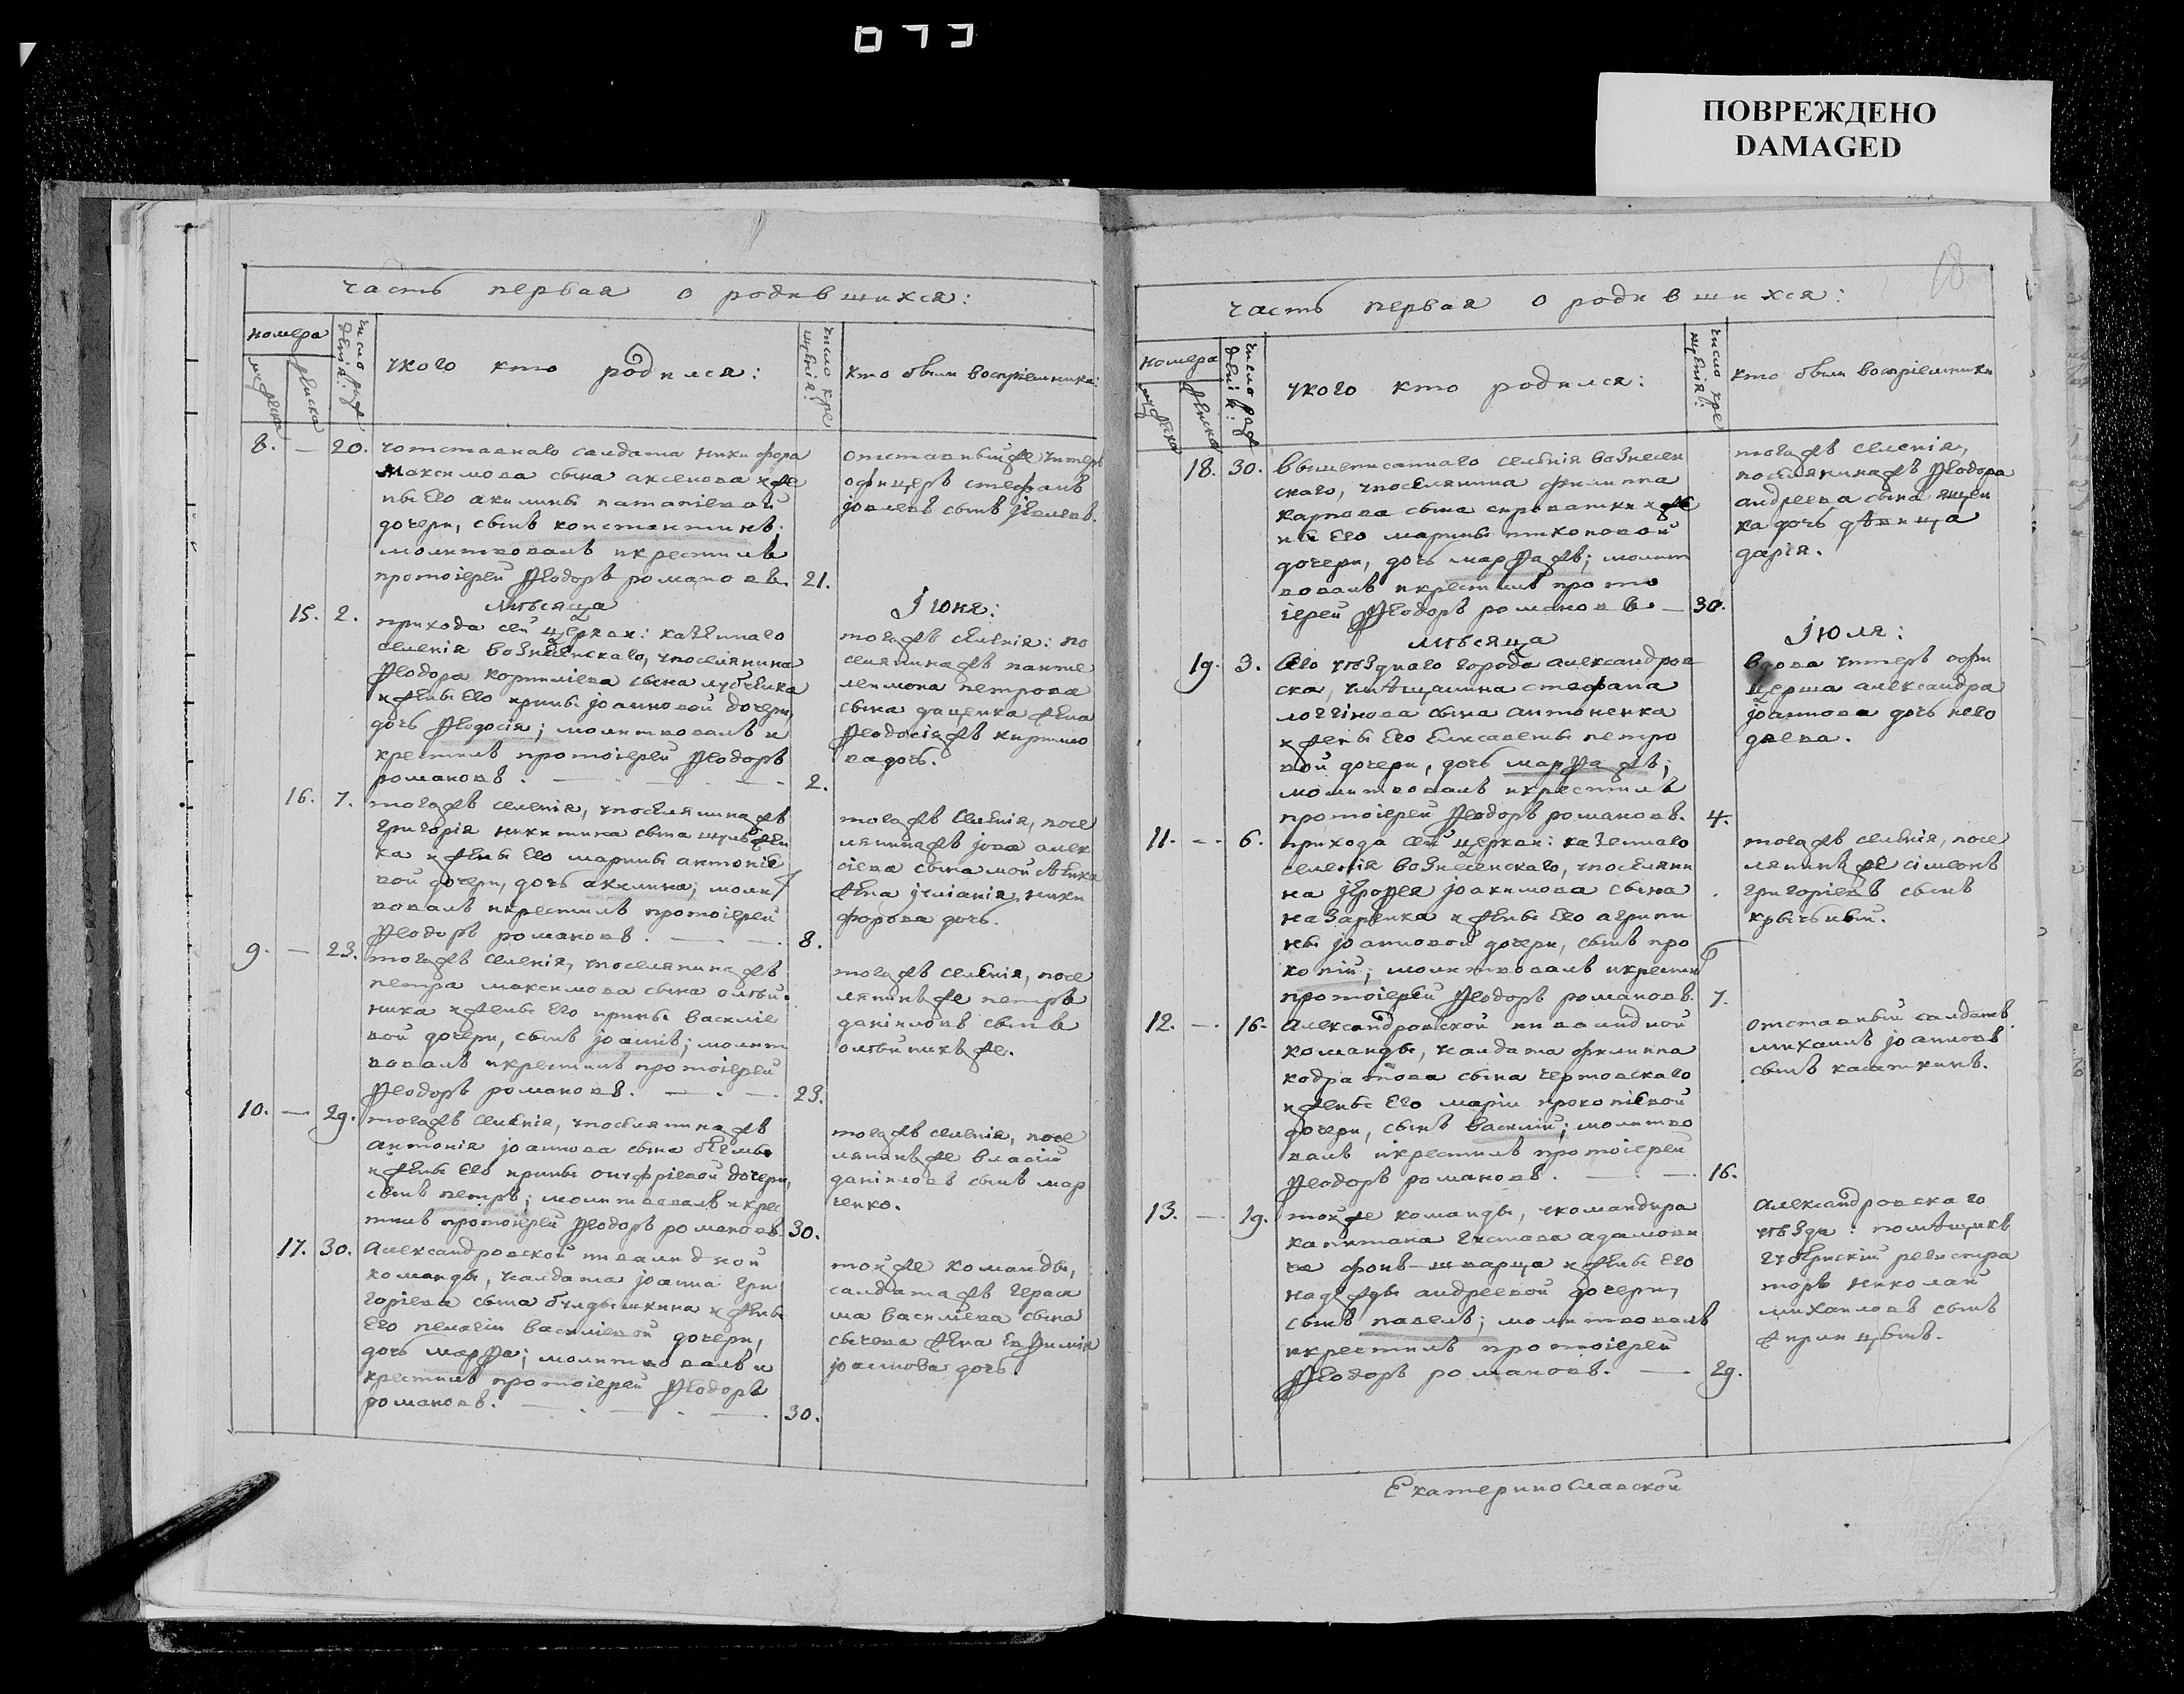 073
ПОВРЕЖДЕНО
DAMAGED
часть первая о родившихся:
номера
мужеска
женска
число рождения:
укого кто родился:
число крещенія:
кто были воспріемники:
8. — 20. уотставнаго салдата никифора
максимова сына аксенова ижѐ
ны его акилины
дочери, сынъ константинъ;
молитвовалъ икрестилъ
протоіерей Ѳеодоръ романовъ. 21.
отставныйже унтеръ
офицеръ стефанъ
іовлевъ сынъ
мѣсяца Іюня:
15. 2. прихода сей церкви: казеннаго
селенія вознесенскаго, упоселянина
Ѳеодора корниліева сына
ижены его ирины іоанновой дочери,
дочь Ѳеодосія; молитвовалъ и
крестилъ протоіерей Ѳеодоръ
романовъ. — 2.
тогожъ селенія: по
селянинажъ панте
леимона петрова
сына даценка жена
Ѳеодосіяжъ кирило
ва дочь.
16. 7. тогожъ селенія, упоселянинажъ
григорія никитина сына
ка ижены его марины антоніе
вой дочери, дочь акилина; молит
вовалъ икрестилъ протоіерей
Ѳеодоръ романовъ. — 8.
тогожъ селенія, посе
лянинажъ іова алек
сіева сына
жена іуліанія, ники
форова дочь.
9. — 23. тогожъ селенія, упоселянинажъ
петра максимова сына олѣй
ника ижены его ирины василіе
вой дочери, сынъ іоаннъ; молит
вовалъ икрестилъ протоіерей
Ѳеодоръ романовъ. — 23.
тогожъ селенія, посе
лянинъже петръ
даніиловъ сынъ
олѣйникъже.
10. — 29. тогожъ селенія, упоселянинажъ
антонія іоаннова сына
ижены его ирины онуфріевой дочери,
сынъ петръ; молитвовалъ икрес
тилъ протоіерей Ѳеодоръ романовъ. 30.
тогожъ селенія, посе
лянинъже власій
даніиловъ сынъ мар
ченко.
17. 30. Александровской инвалидной
команды, усалдата іоанна гри
горіева сына булдышкина ижены
его пелагіи василіевой дочери,
дочь марѳа; молитвовалъ и
крестилъ протоіерей Ѳеодоръ
романовъ. — 30.
тойже команды,
салдатажъ гераси
ма василіева сына
сычева жена евѳимія
іоаннова дочь.
18
часть первая о родившихся:
номера
мужеска
женска
число рождения:
укого кто родился:
число крещенія:
кто были воспріемники
18. 30. Ввышеписаннаго селенія вознесен
скаго, упоселянина филиппа
карпова сына сироватки иже
ны его марины тихоновой
дочери, дочь марѳажъ; молит
вовалъ икрестилъ прото
іерей Ѳеодоръ романовъ. — 30.
тогожъ селенія,
поселянинажъ Ѳеодора
андреева сына ящен
ка дочь дѣвица
дарія.
мѣсяца Іюля:
19. 3. Его уѣзднаго города александров
ска, умѣщанина стефана
логгінова сына антоненка
ижены его елисаветы петро
вой дочери, дочь марѳажъ;
молитвовалъ икрестилъ
протоіерей Ѳеодоръ романовъ. 4.
вдова унтеръ офи
церша александра
іоаннова дочь него
дяева.
11. — 6. прихода сей церкви: казеннаго
селенія вознесенскаго, упоселяни
на іероѳея іоакимова сына
назаренка ижены его агрипи
ны іоанновой дочери, сынъ про
копій; молитвовалъ икрестилъ
протоіерей Ѳеодоръ романовъ. 7.
тогожъ селенія, посе
лянинъже сімеонъ
григоріевъ сынъ
12. — 16. Александровской инвалидной
команды, усалдата филиппа
кодратова сына чертовскаго
ижены его маріи прокопіевой
дочери, сынъ василій; молитво
валъ икрестилъ протоіерей
Ѳеодоръ романовъ. — 16.
отставный салдатъ
михаилъ іоанновъ
сынъ касаткинъ.
13. — 19. тойже команды, укомандира
капитана густава адамови
ча фонъ-шварца ижены его
надежды андреевой дочери,
сынъ павелъ; молитвовалъ
икрестилъ протоіерей
Ѳеодоръ романовъ. — 29.
Александровскаго
уѣзда: помѣщикъ
губернскій регистра
торъ николай
михаиловъ сынъ
Екатеринославской